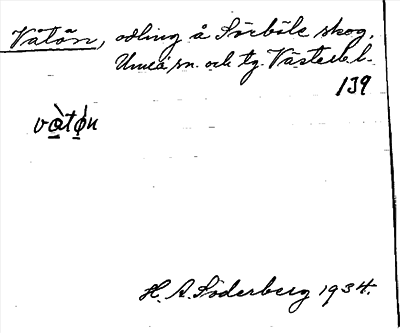 Våtån, odling å Sörböle skog,
Umeå sn. och tg. Västerb. l.
139
våtǫ́n
H. A. Söderberg 1934.